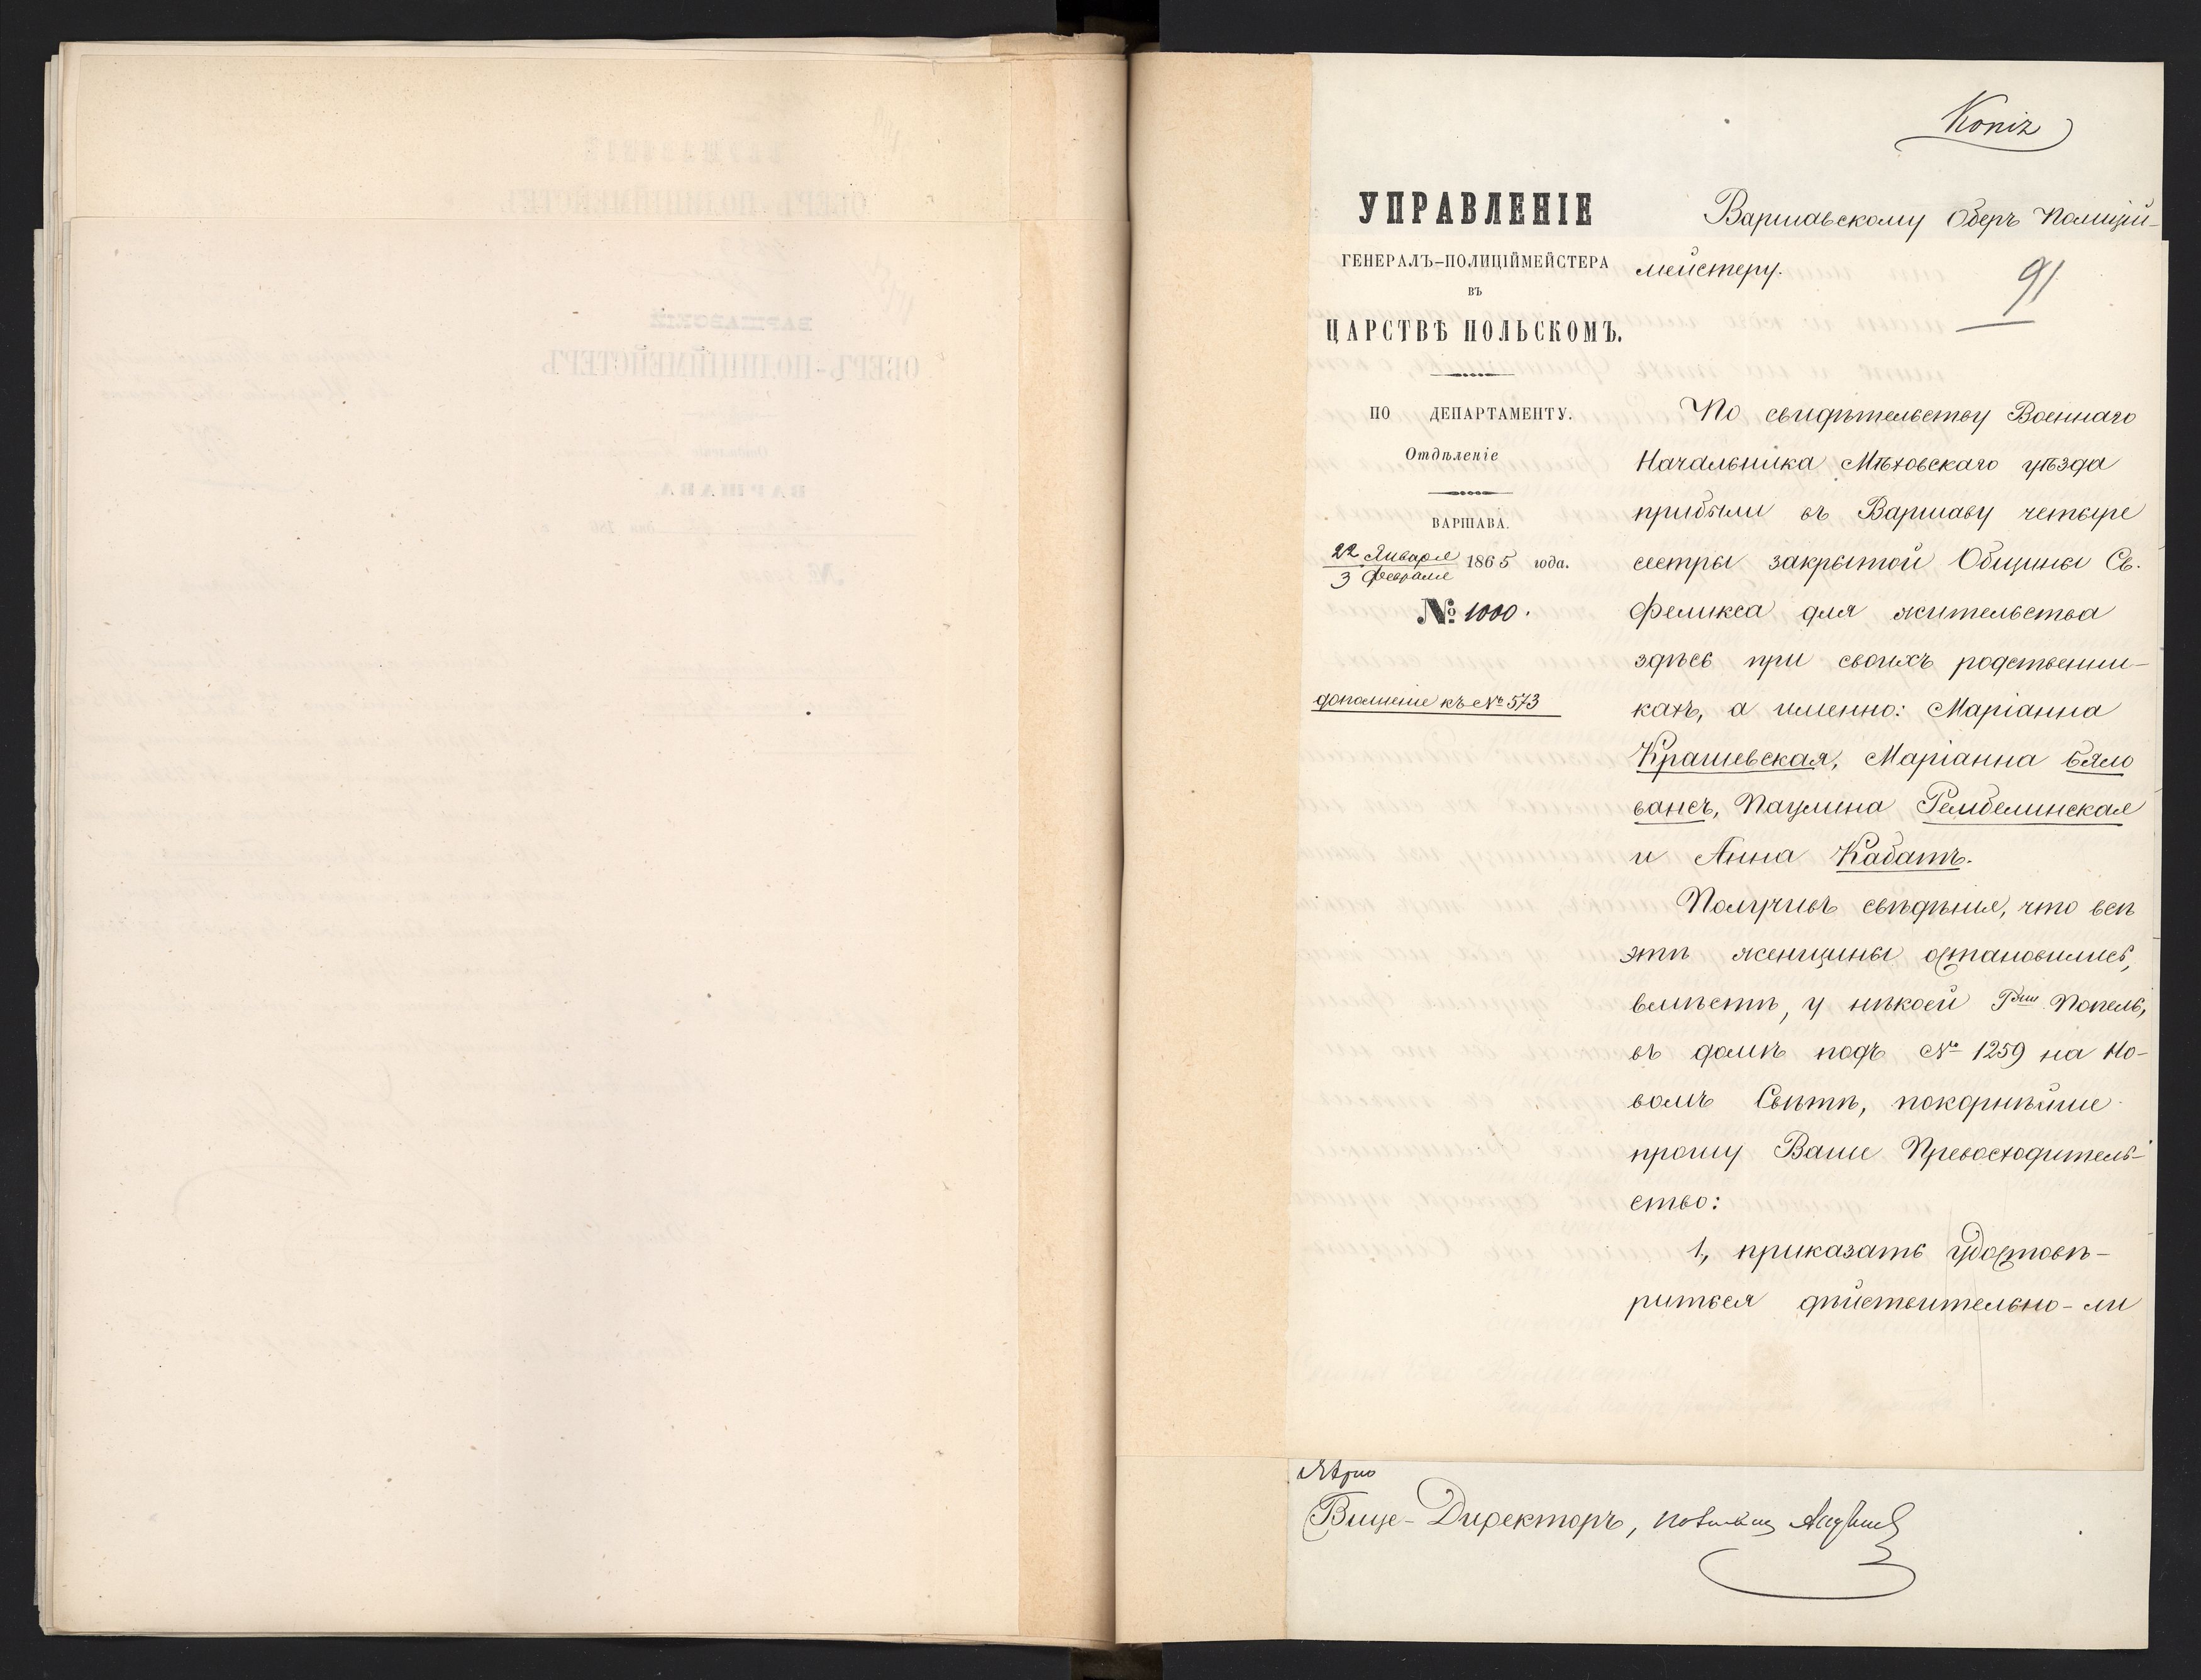 Копія
91
УПРАВЛЕНІЕ
ГЕНЕРАЛЪ-ПОЛИЦІЙМЕЙСТЕРА
ВЪ
ЦАРСТВѢ ПОЛЬСКОМЪ.
ПО ДЕПАРТАМЕНТУ.
Отдѣленіе
ВАРШАВА.
22 Января
3 Февраля 1865 года.
№ 1000.
дополненіе къ № 573
Варшавскому Оберъ Полицій-
мейстеру.
По свидѣтельству Военнаго
Начальника Мѣховскаго уѣзда
прибыли въ Варшаву четыре
сестры закрытой Общины Св.
Феликса для жительства
здѣсь при своихъ родственни-
кахъ, а именно: Маріанна
Крашевская, Маріанна Бяло
вансъ, Паулина Рембелинская
и Анна Кабатъ.
Получивъ свѣдѣнія, что всѣ
этѣ женщины остановились,
вмѣстѣ, у нѣкоей Гжи Попель,
въ домѣ подъ № 1259 на Но-
вомъ Свѣтѣ, покорнѣйше
прошу Ваше Превосходитель-
ство:
1, приказать удостовѣ-
риться дѣйствительно-ли
Вице-Директоръ,